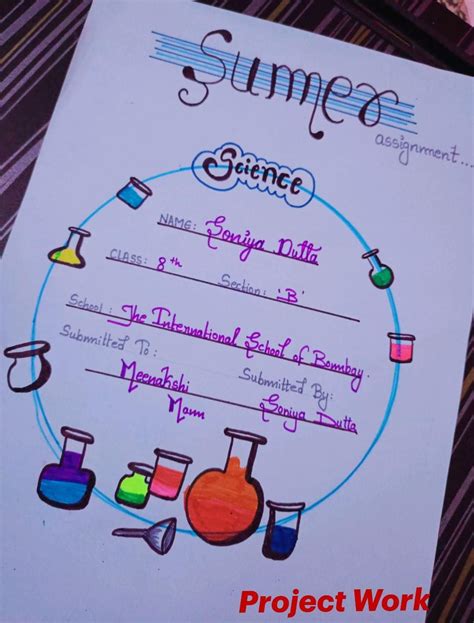 Summer
assignment...
Science
NAME: Soniya Dutta
CLASS: 8th Section: 'B'
School: The International School of Bombay.
Submitted To: Submitted By:
Meenakshi Soniya Dutta
Mam
Project Work